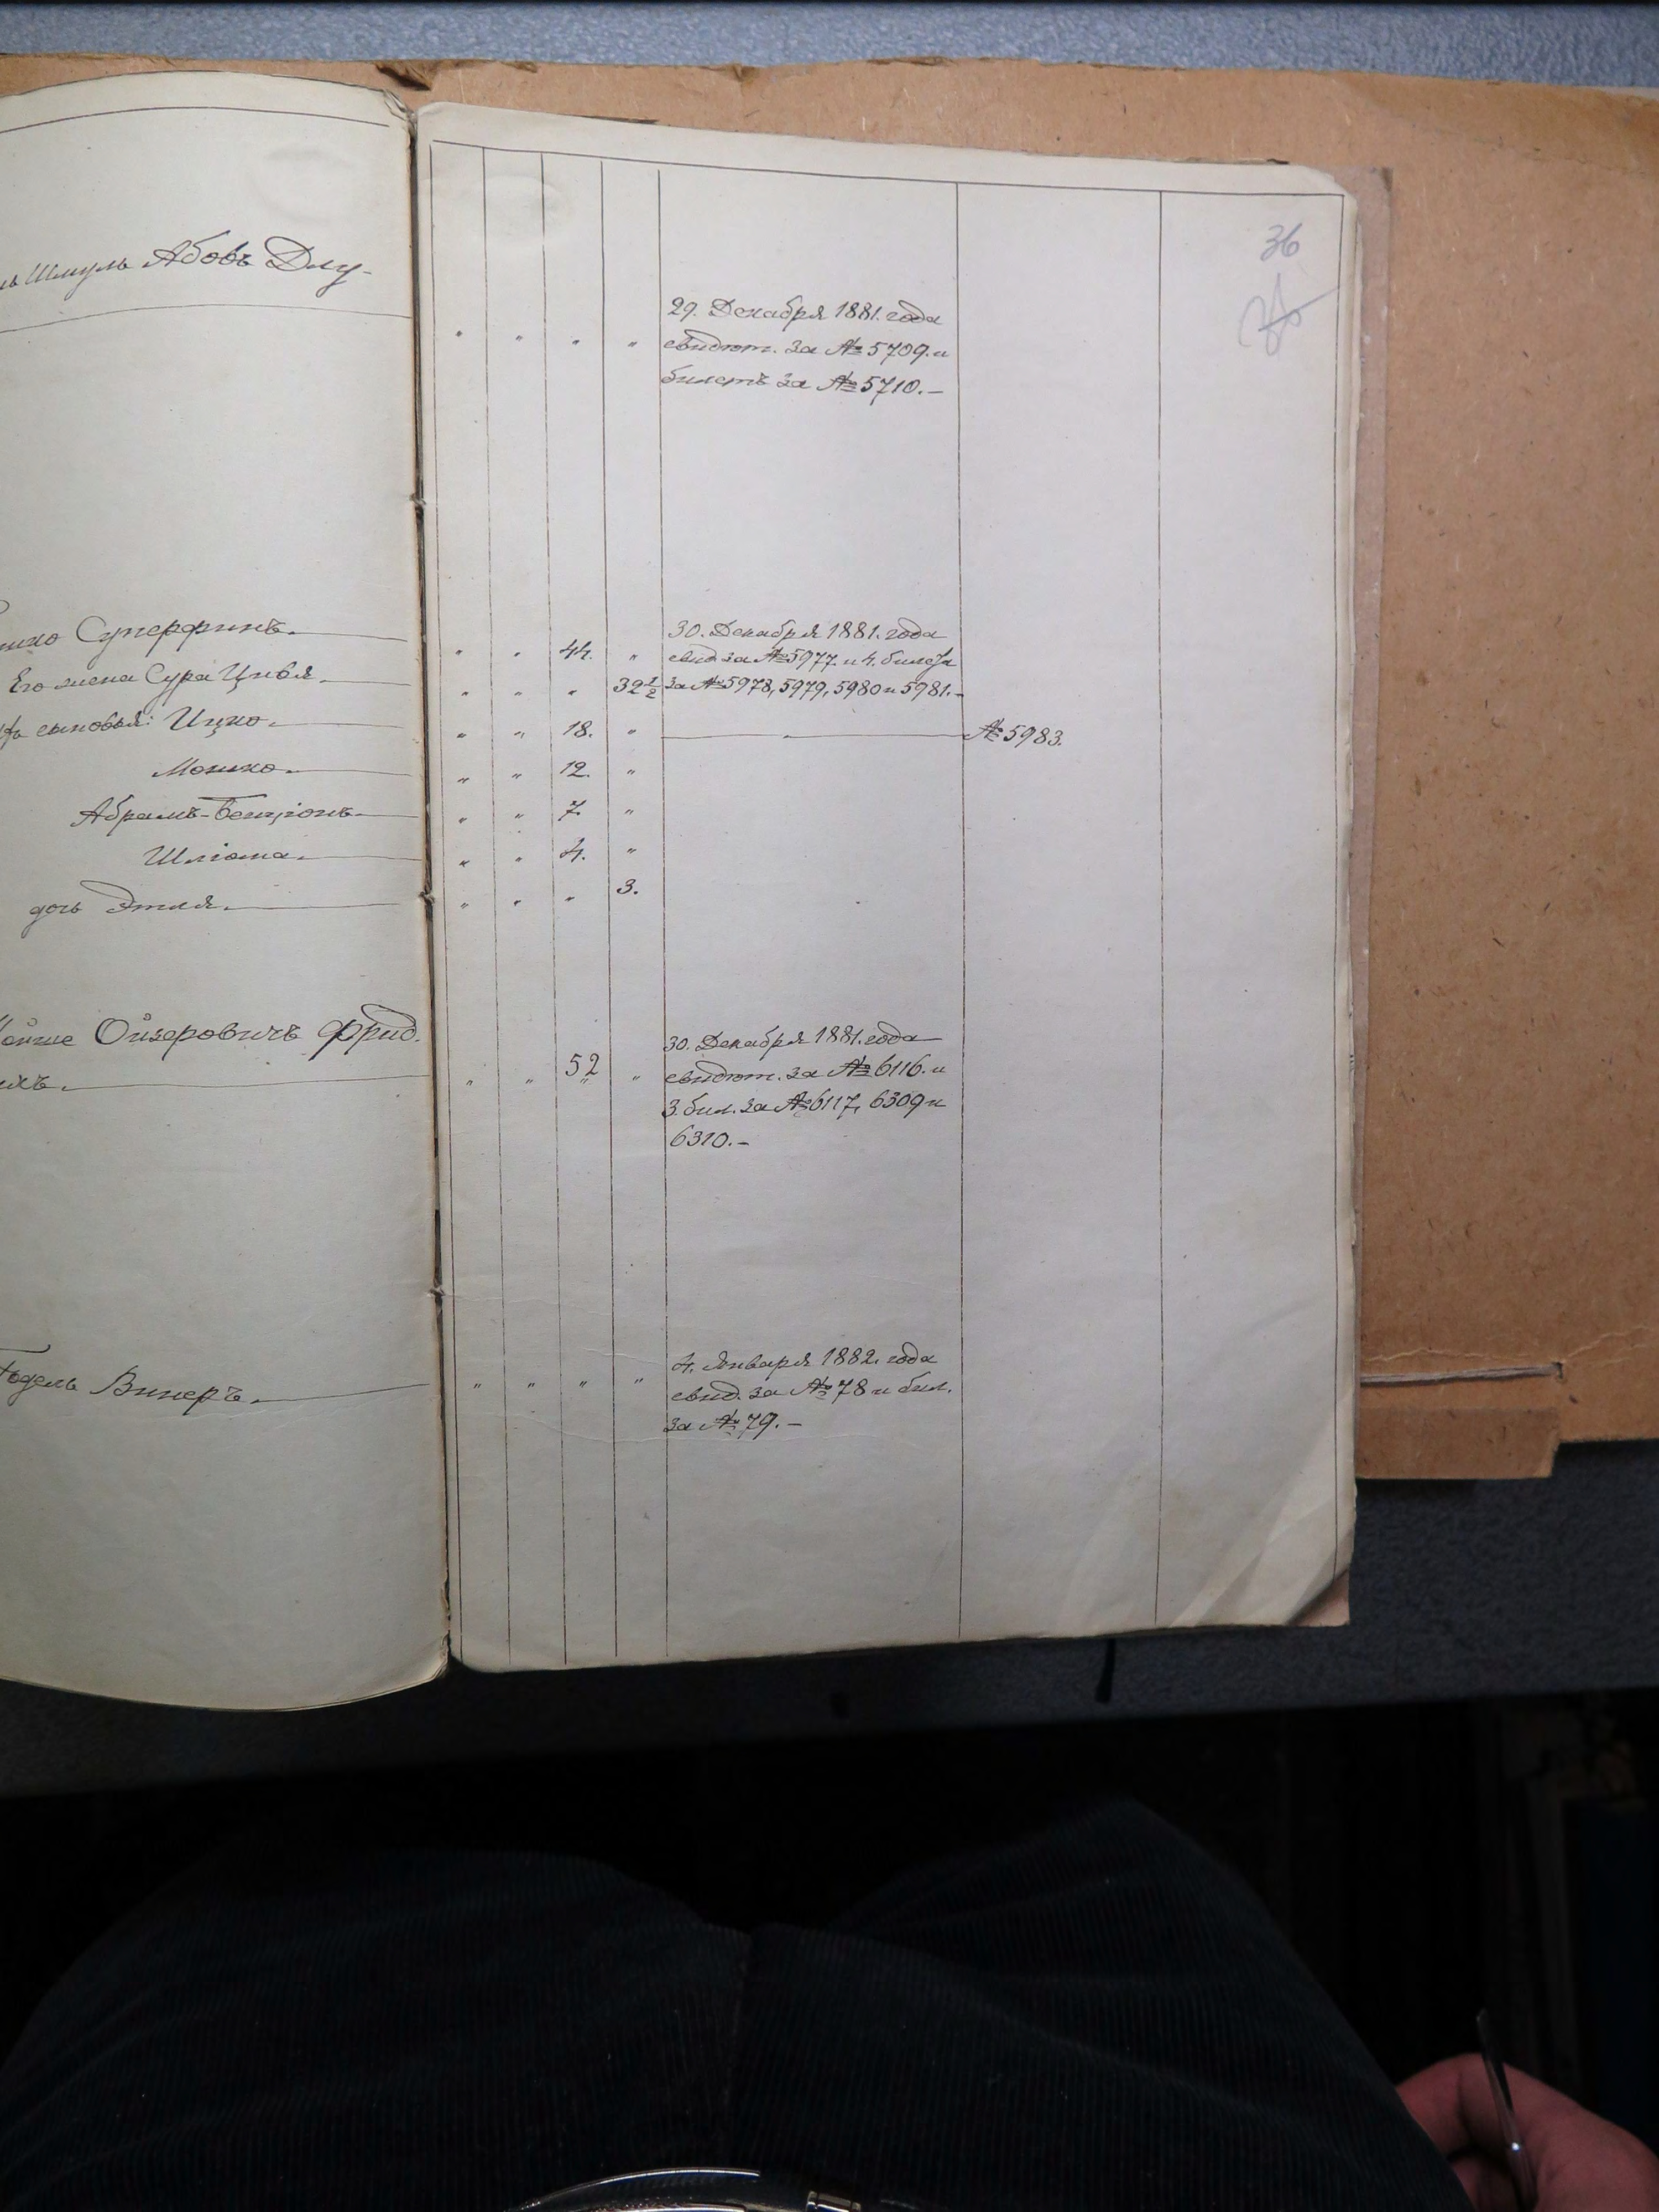 36
Шмуль Абовъ Длу-
" " " " 29. Декабря 1881. года
свидѣт. за № 5709. и
билетъ за № 5710.—
Суперфинъ.
" " 44. " 30. Декабря 1881. года
свид. за № 5977. и 4. билета
Его жена Сура Цивья.
" " " 32 1/2 за № 5978, 5979, 5980 и 5981.—
сыновья: Ицко. " " 18. " № 5983.
Мошко. " " 12. "
Абрамъ-Бенціонъ. " " 7. "
Шліома. " " 4. "
дочь Этля. " " " 3.
Ойзеровичъ Фрид.
" " 52 " 30. Декабря 1881. года
свидѣт. за № 6116. и
3. бил. за № 6117, 6309 и
6310.—
Годель Винеръ. " " " " 4. Января 1882. года
свид. за № 78 и бил.
за № 79.—